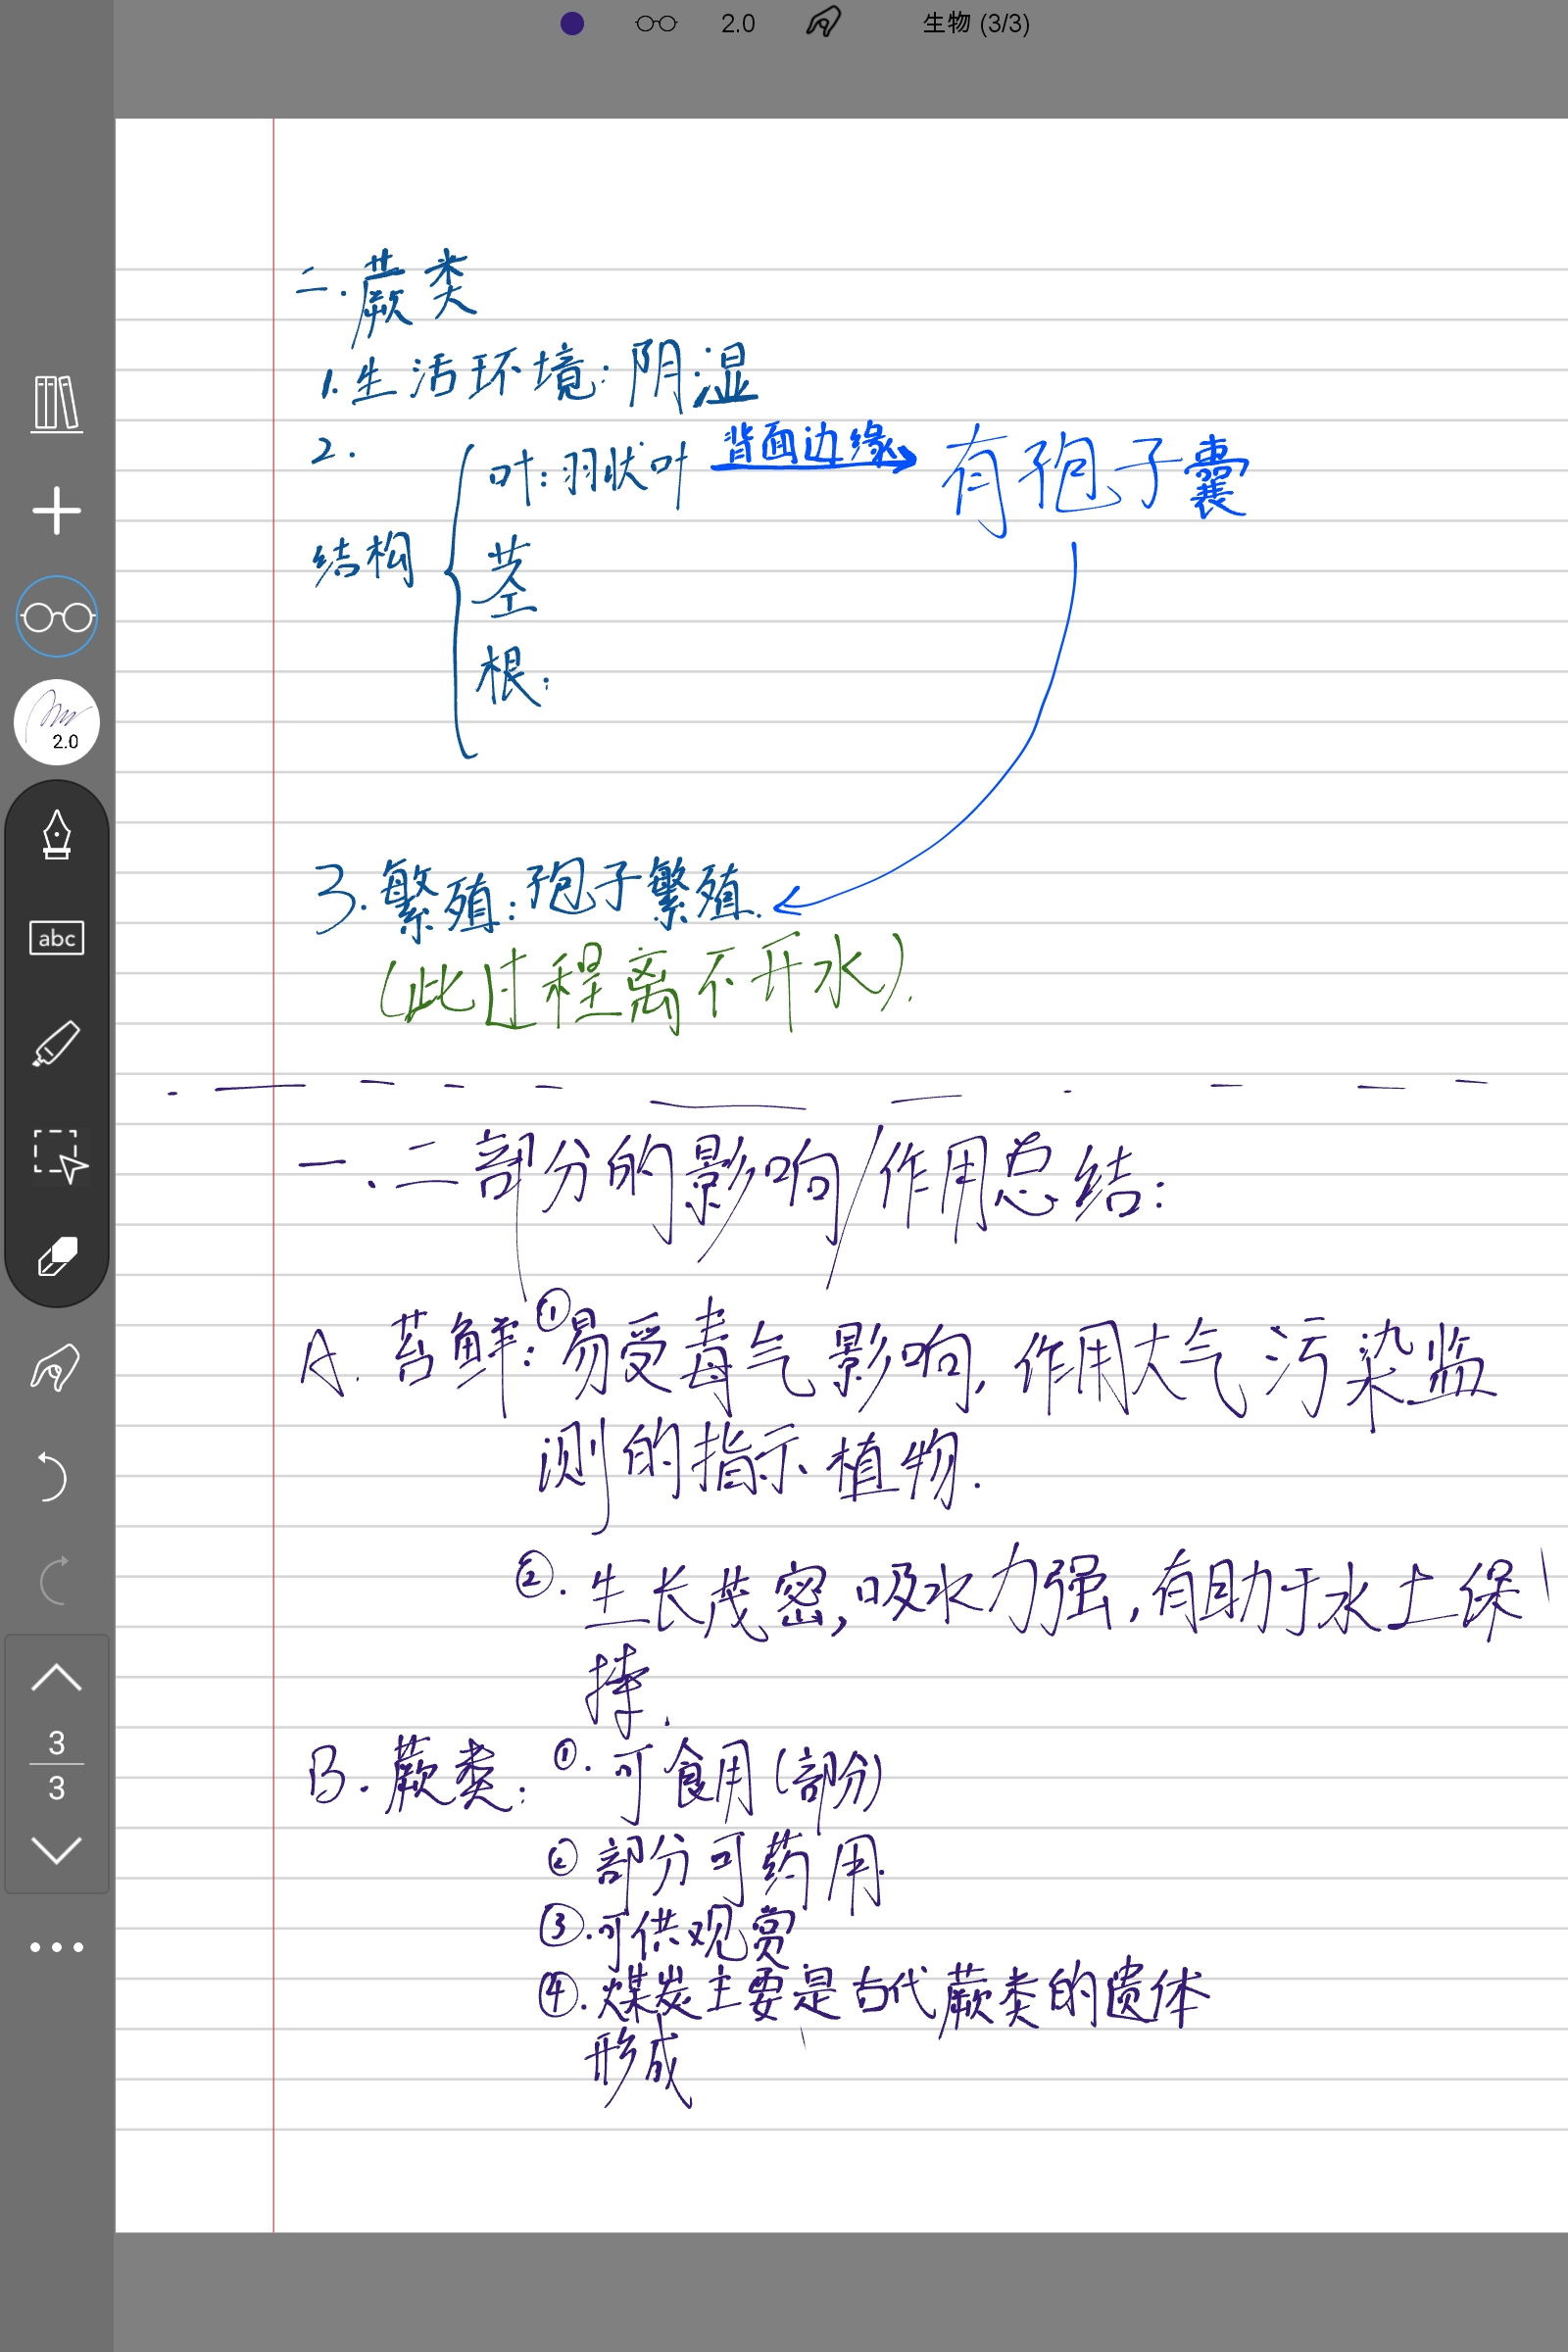 2.0
生物 (3/3)
二.蕨类
1.生活环境:阴湿
2.
结构
叶:羽状叶 背面边缘 有孢子囊
茎
根:
3.繁殖:孢子繁殖.
(此过程离不开水).
一.二部分的影响/作用总结:
A.苔鲜:①易受毒气影响,作用大气污染监
测的指示植物.
②.生长茂密,吸水力强,有助于水土保
持.
B.蕨类:①.可食用(部分)
②部分可药用.
③.可供观赏
④.煤炭主要是古代蕨类的遗体
形成
2.0
abc
3
3